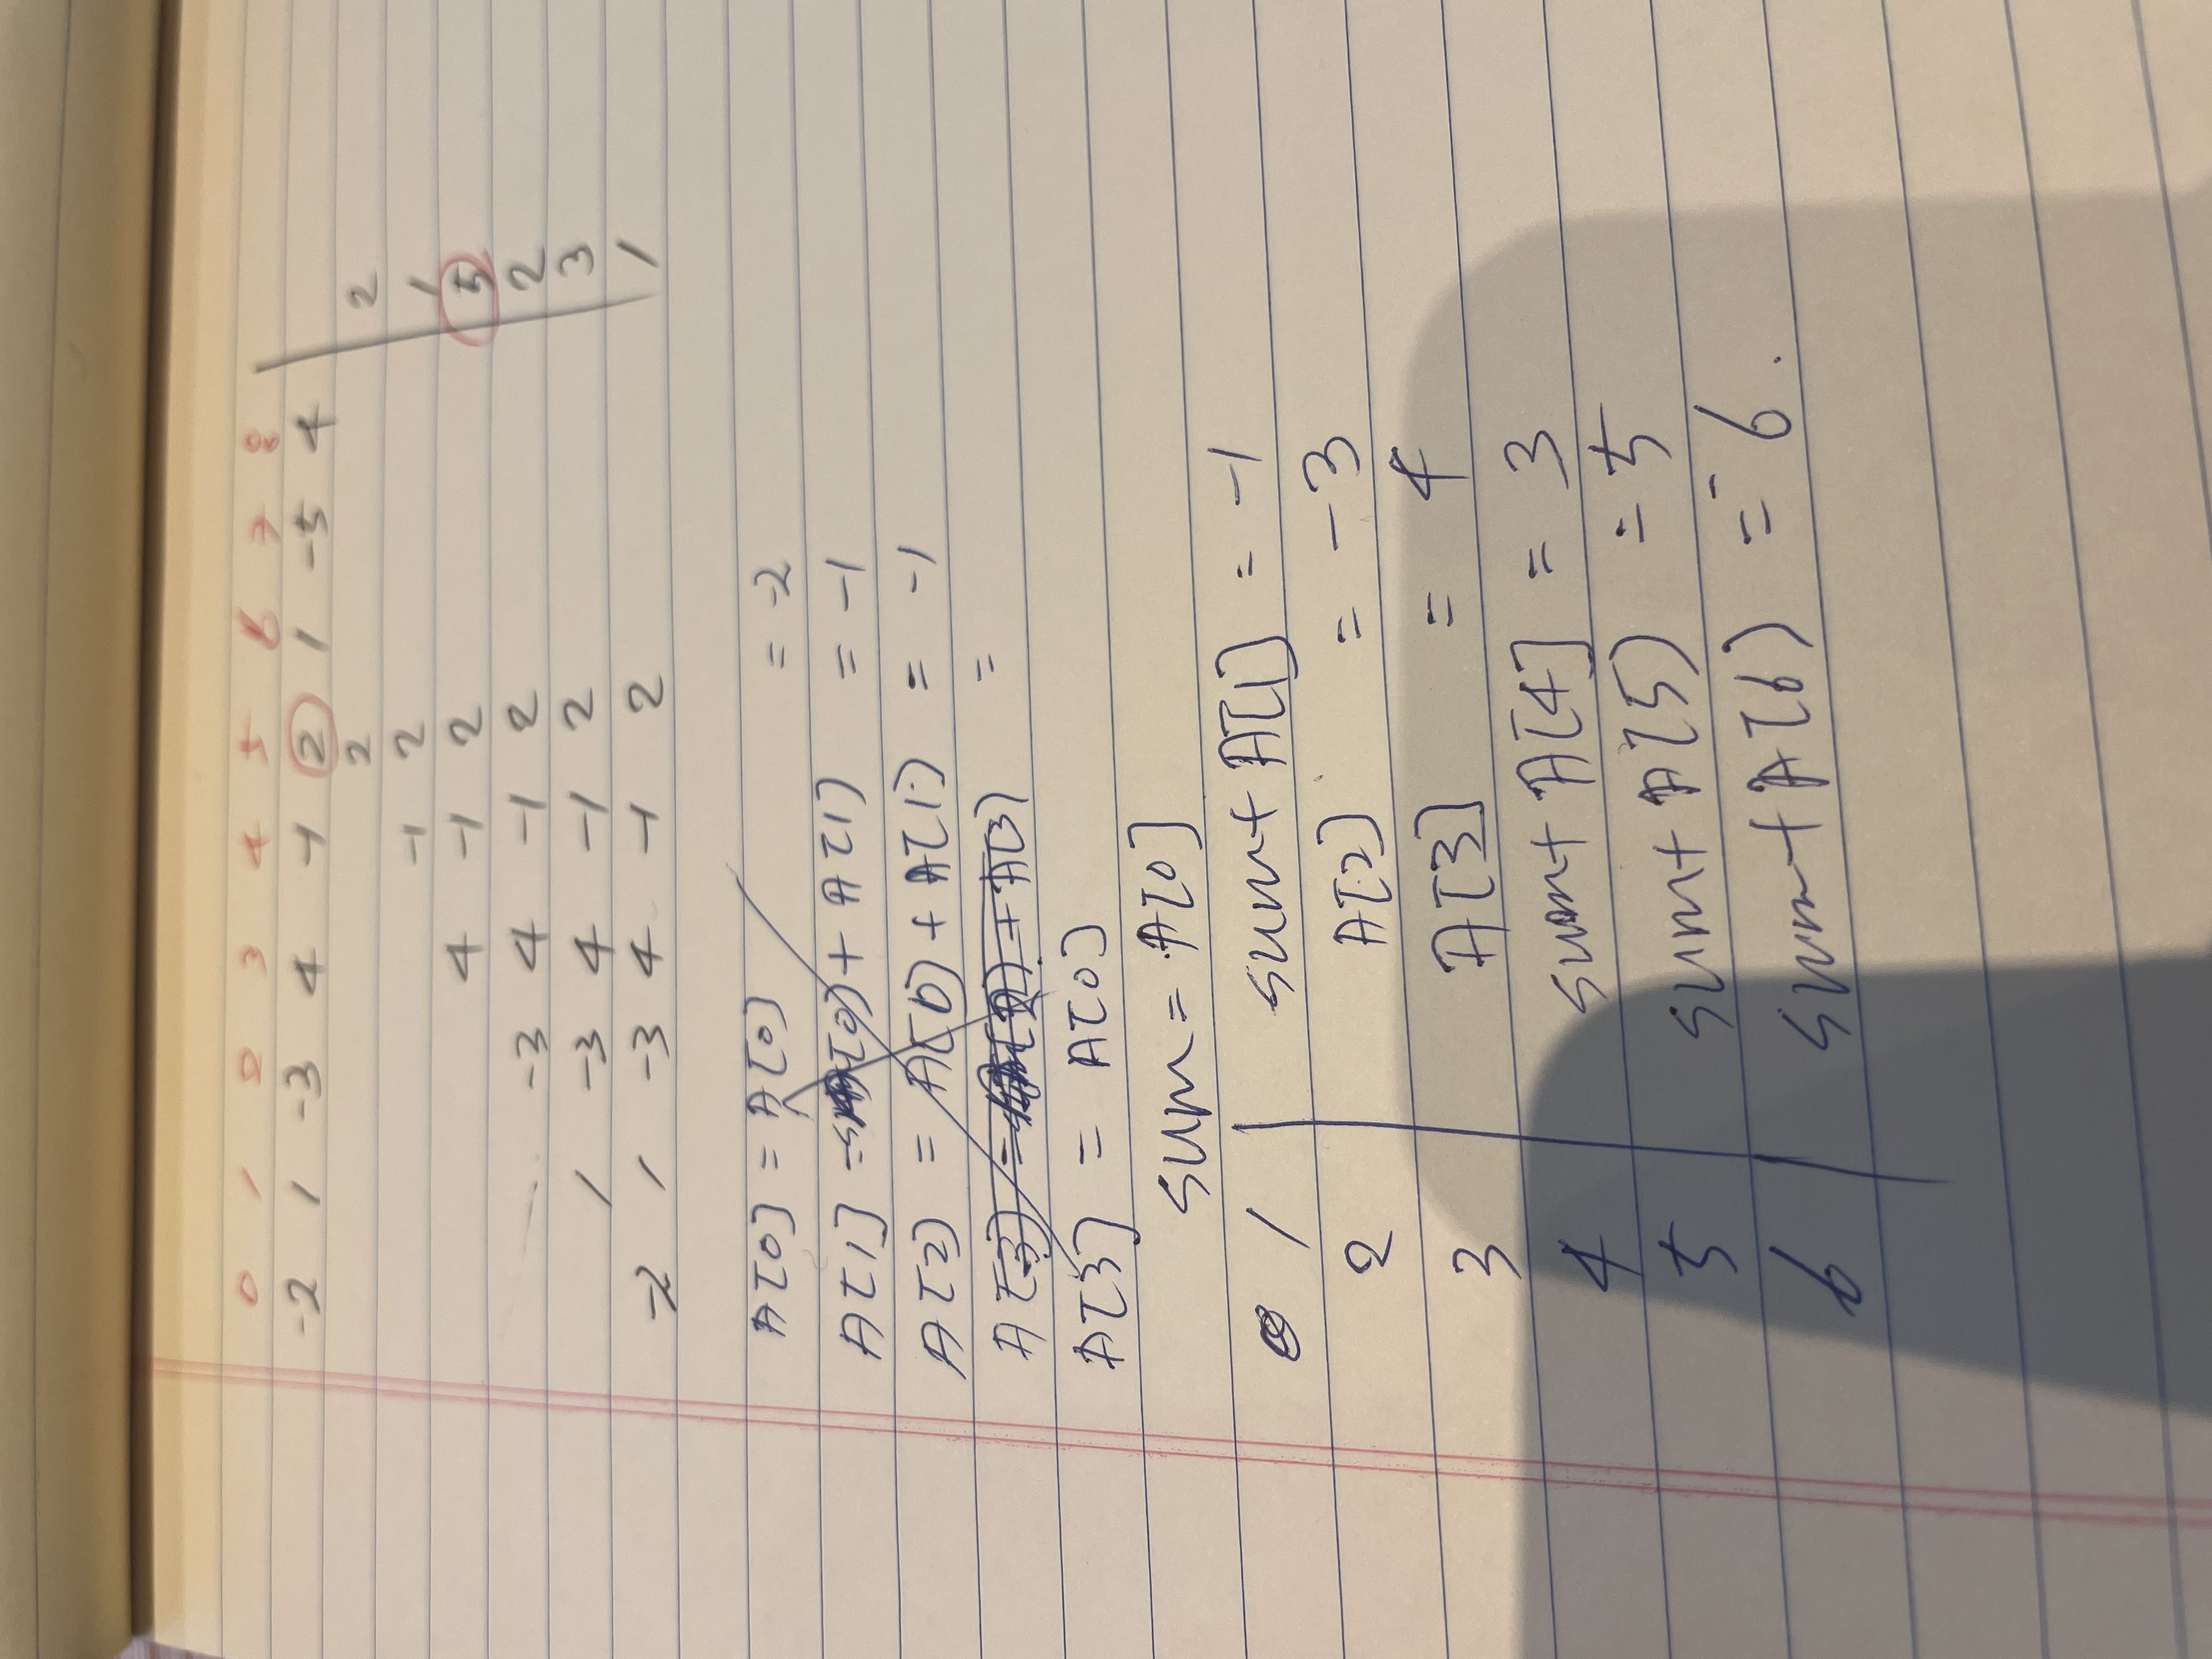 0 1 2 3 4 5 6 7 8
-2 1 -3 4 -1 2 1 -5 4
2 2
-1 2 1
4 -1 2 5
-3 4 -1 2 2
1 -3 4 -1 2 3
-2 1 -3 4 -1 2 1
A[0] = A[0] = -2
A[1] = A[0] + A[1] = -1
A[2] = A[0] + A[1] = -1
A[3] = A[2] + A[3] =
A[3] = A[0]
sum = A[0]
1 sum + A[1] = -1
2 A[2] = -3
3 A[3] = 4
4 sum + A[4] = 3
5 sum + A[5] = 5
6 sum + A[6] = 6.